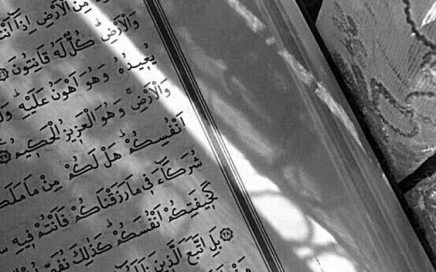 مِنَ الْأَرْضِ إِذَا
وَالْأَرْضِ كُلٌّ لَهُ قَانِتُونَ
يُعِيدُهُ وَهُوَ أَهْوَنُ عَلَيْهِ
وَالْأَرْضِ وَهُوَ الْعَزِيزُ الْحَكِيمُ
اَنْفُسِكُمْ هَلْ لَكُمْ مِنْ مَا
شُرَكَاءَ فِي مَا رَزَقْنَاكُمْ فَاَنْتُمْ فِيهِ
كَخِيفَتِكُمْ اَنْفُسَكُمْ كَذٰلِكَ نُفَصِّلُ
بَلِ اتَّبَعَ الَّذِينَ